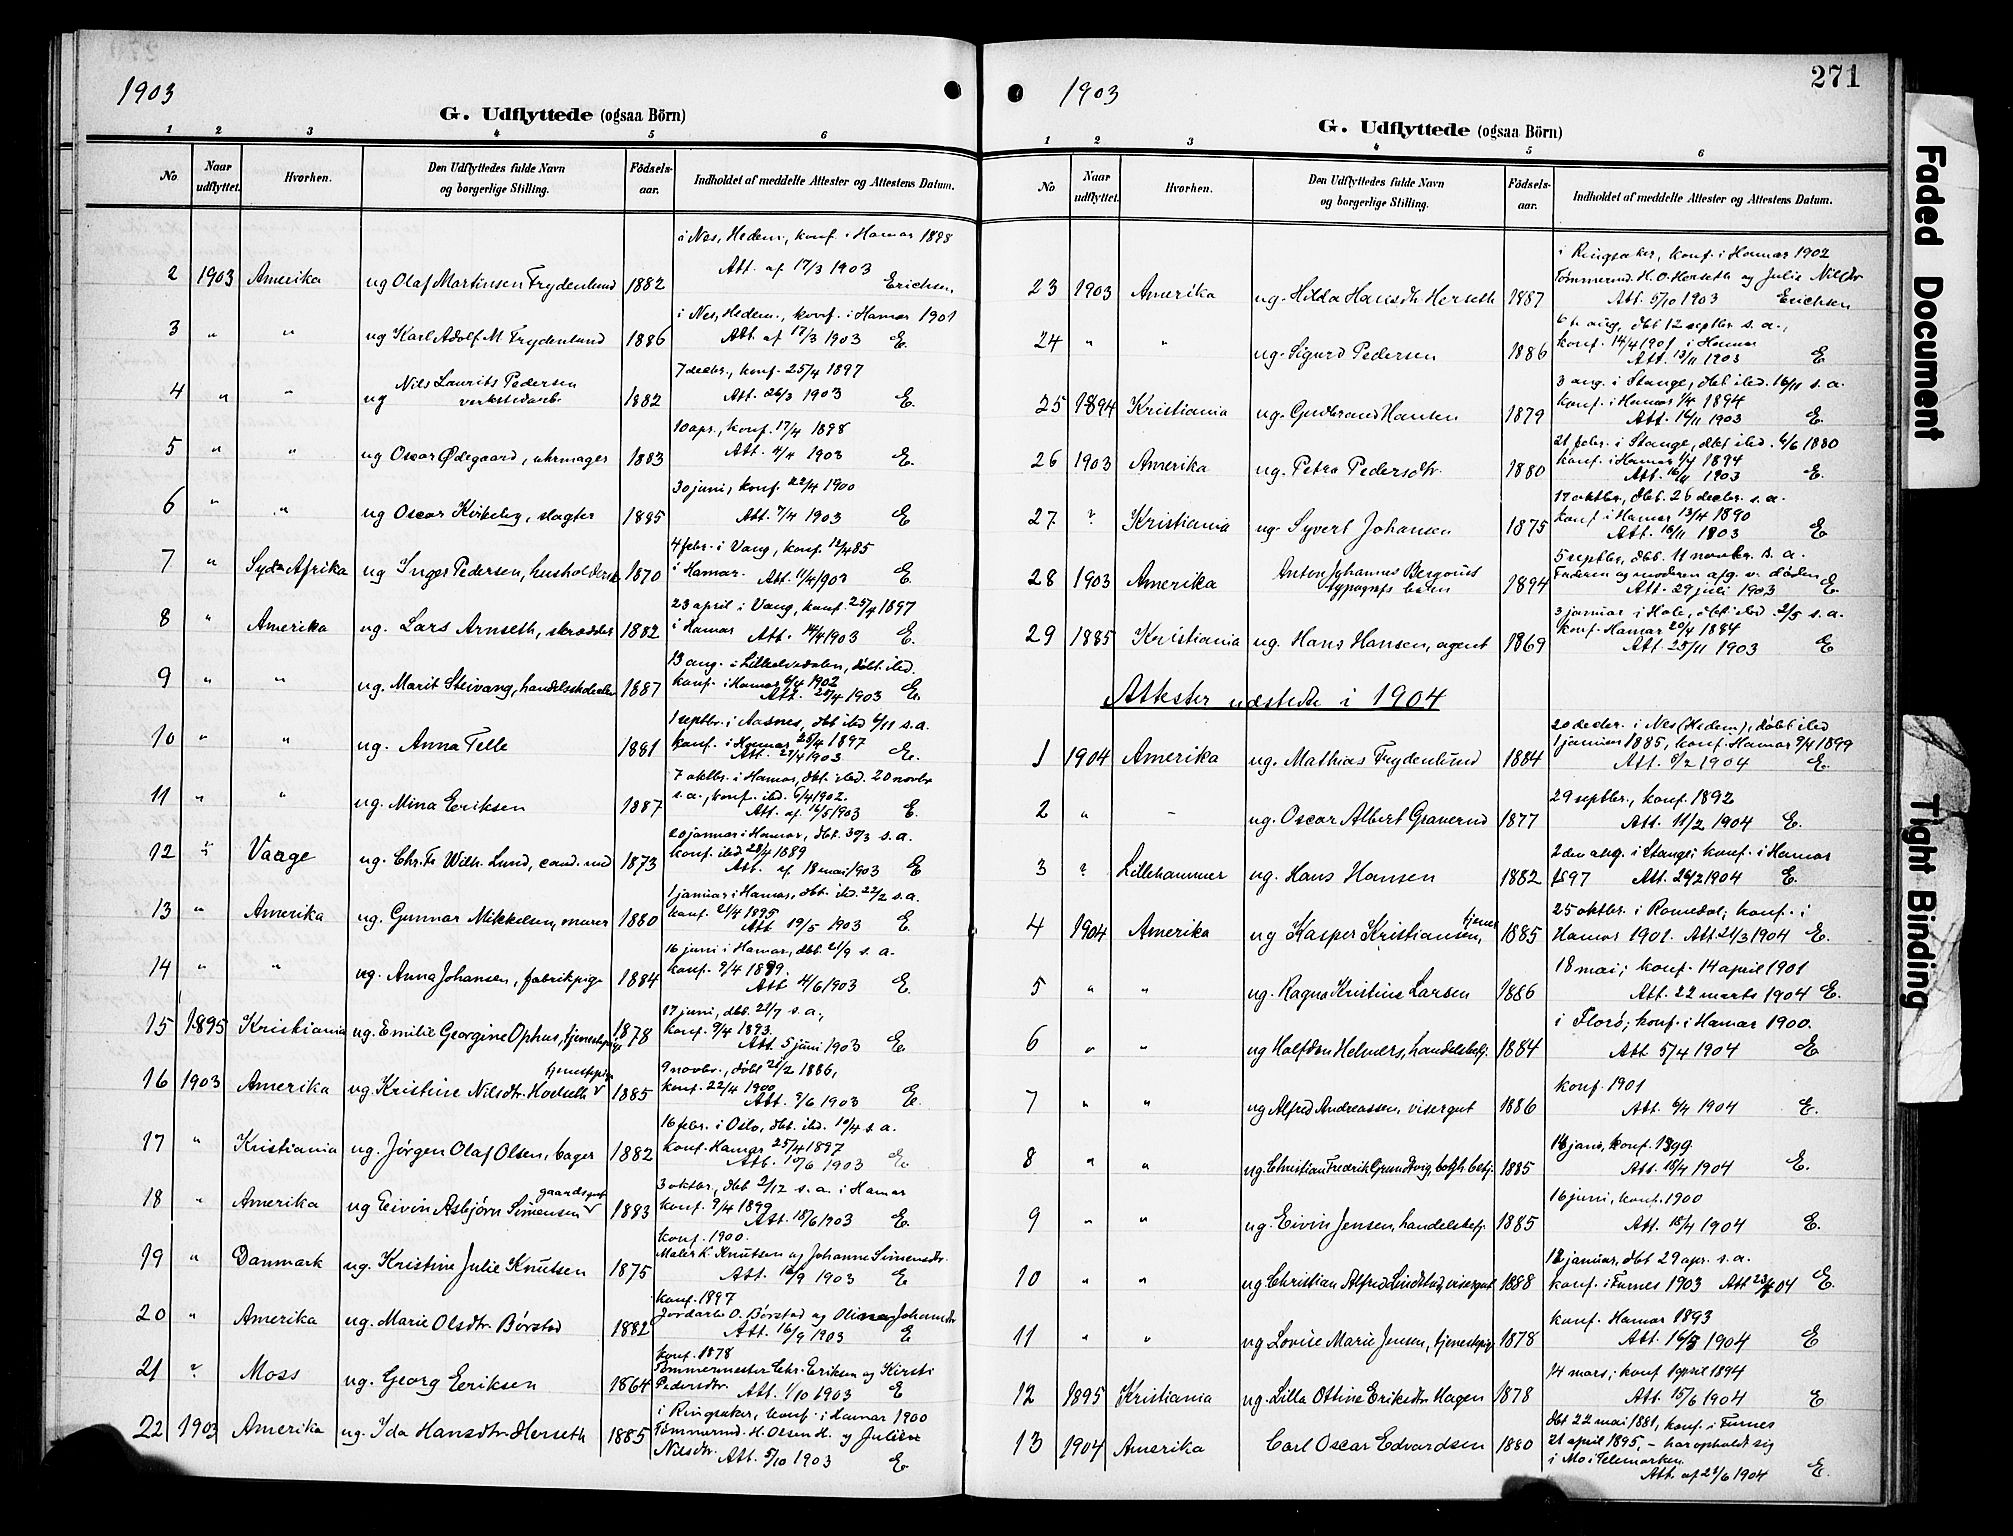 1903
G. Udflyttede (ogsaa Börn)
1 2 3 4 5 6
No. Naar udflyttet. Hvorhen. Den Udflyttedes fulde Navn og borgerlige Stilling. Fødsels-aar. Indholdet af meddelte Attester og Attestens Datum.
i Nes, Hedem., konf. i Hamar 1898
2 1903 Amerika ug Olaf Martinsen Frydenlund 1882 Att. af 17/3 1903 Erichsen
i Nes, Hedem., konf. i Hamar 1901
3 " " ug Karl Adolf M. Frydenlund 1886 Att. af 17/3 1903 E.
7 decbr., konf. 25/4 1897
4 " " ug Nils Laurits Pedersen verkstedarb. 1882 Att. 26/3 1903 E.
10 apr., konf. 17/4 1898
5 " " ug Oscar Ødegaard, uhrmager 1883 Att. 4/4 1903 E.
30 juni, konf. 22/4 1900
6 " " ug Oscar Kirkeby, slagter 1885 Att. 7/4 1903 E
4 febr. i Vang, konf. 12/4 85
7 " Syd-Afrika ug Inger Pedersen, husholderske 1870 i Hamar. Att. 11/4 1903 E.
23 april i Vang, konf. 25/4 1897
8 " Amerika ug. Lars Arnseth, skrædder 1882 i Hamar Att. 14/4 1903 E.
13 aug. i Lilleelvedalen, døbt ibd.
9 " " ug. Marit Steivang, handelsbetj. 1887 konf. i Hamar 6/4 1902 Att. 20/4 1903 E.
1 septbr. i Aasnes, dbt ibd 6/11 s.a.
10 " " ug. Anna Telle 1881 konf. i Hamar 25/4 1897 Att. 27/4 1903 E.
7 oktbr. i Hamar, dbt. ibd. 20 novbr
11 " " ug. Mina Eriksen 1887 s.a., konf. ibd. 6/4 1902. Att. af 16/5 1903 E.
20 januar i Hamar, dbt. 30/3 s.a.
12 " Vaage ug. Chr. Fr. Wilh. Lund, cand. med 1873 konf. ibd. 28/4 1889 Att. af 18 mai 1903 E
1 januar i Hamar, dbt. ibd. 22/2 s.a.
13 " Amerika ug. Gunnar Mikkelsen, murer 1880 konf. 21/4 1895 Att 19/5 1903 E.
16 juni i Hamar, dbt. 21/9 s.a.
14 " " ug. Anna Johansen, fabrikpige 1884 konf. 9/4 1899. Att 4/6 1903 E.
17 juni, dbt. 21/7 s.a.,
15 1895 Kristiania ug. Emilie Georgine Ophus, tjenestepige 1878 konf. 9/4 1893. Att. 5 juni 1903 E.
9 novbr., døbt 21/2 1886,
16 1903 Amerika ug Kristine Nilsdtr. Hodseth tjenestepige 1885 konf. 22/4 1900 Att. 9/6 1903 E.
16 febr. i Oslo, dbt. ibd. 10/4 s.a.
17 " Kristiania ug. Jørgen Olaf Olsen, bager 1882 konf. Hamar 25/4 1897 Att. 10/6 1903 E.
3 oktbr., dbt 2/12 s.a. i Hamar
18 " Amerika ug Eivin Asbjørn Simensen gaardsgut 1883 konf. 9/4 1899 Att. 18/6 1903 E.
konf. 1900.
19 " Danmark ug. Kristine Julie Knutsen 1875 Maler K. Knutsen og Johanne Simensdtr. Att. 12/9 1903 E
konf. 1897
20 " Amerika ug. Marie Olsdtr. Børstad 1882 Jordarb. O. Børstad og Oline Johansdtr Att. 16/9 1903 E
konf. 1878
21 ? Moss ug. Georg Eriksen 1864 Tømmermester Chr. Eriksen og Kirsti Pedersdtr. Att. 1/10 1903 E
i Ringsaker, konf. i Hamar 1900
22 1903 Amerika ug. Ida Hansdtr Herseth 1885 Tømmermd. H. Olsen H. og Juliane Nilsdtr. Att. 5/10 1903 E.
1903
271
G. Udflyttede (ogsaa Börn)
1 2 3 4 5 6
No Naar udflyttet. Hvorhen. Den Udflyttedes fulde Navn og borgerlige Stilling. Fødsels-aar. Indholdet af meddelte Attester og Attestens Datum.
i Ringsaker, konf. i Hamar 1902
23 1903 Amerika ug. Hilda Hansdtr Herseth 1887 Tømmermd. H. O. Herseth og Julie Nilsdtr Att. 5/10 1903 Erichsen
6te aug, dbt 12 septbr. s.a.,
24 " " ug. Sigurd Pedersen 1886 konf. 14/4 1901 i Hamar Att. 13/11 1903 E
3 aug. i Stange, dbt ibd. 16/11 s.a.
25 1894 Kristiania ug. Gudbrand Hansen 1879 konf. i Hamar 1/4 1894 Att. 14/11 1903 E.
21 febr. i Stange, dbt ibd. 6/6 1880
26 1903 Amerika ug. Petra Pedersdtr. 1880 konf. i Hamar 1/4 1894 Att. 16/11 1903 E.
17 oktbr., dbt. 26 decbr. s.a.
27 ? Kristiania ug. Syvert Johansen 1875 konf. i Hamar 13/4 1890 Att. 16/11 1903 E
5 septbr, dbt. 11 novbr. s.a.
28 1903 Amerika Anton Johannes Bergorius typografs barn 1894 Faderen og moderen afg. v. døden Att. 29 juli 1903 E
3 januar i Hole, dbt ibd. 2/5 s.a.
29 1885 Kristiania ug. Hans Hansen, agent 1869 konf. Hamar 20/4 1884 Att. 25/11 1903 E
Attester udstedte i 1904
20 decbr. i Nes (Hedem), døbt ibd
1 1904 Amerika ug. Mathias Frydenlund 1884 1 januar 1885, konf. Hamar 9/4 1899 Att. 5/2 1904 E.
29 septbr., konf. 1892
2 " - ug. Oscar Albert Graverud 1877 Att. 11/2 1904 E.
2den aug. i Stange; konf. i Hamar
3 ? Lillehammer ug. Hans Hansen 1882 1897 Att. 26/2 1904 E.
25 oktbr. i Romedal; konf. i
4 1904 Amerika ug Kasper Kristiansen, tjener 1885 Hamar 1901. Att. 21/3 1904 E.
18 mai; konf. 14 april 1901
5 " " ug. Ragna Kristine Larsen 1886 Att. 22 marts 1904 E.
i Florø; konf. i Hamar 1900.
6 " " ug Halfdan Helmers, handelsbetj. 1884 Att 5/4 1904 E
konf. 1901
7 " " ug Alfred Andreassen, visergut 1886 Att. 6/4 1904 E.
16 jan, konf. 1899
8 " " ug. Christian Fredrik Grundtvig, boghbetj. 1885 Att. 18/4 1904 E.
16 juni, konf. 1900
9 " " ug. Eivin Jensen, handelsbetj. 1885 Att. 18/4 1904 E.
12 januar, dbt 29 apr. s.a.
10 " " ug Christian Alfred Lindstad, visergut 1888 konf. i Furnes 1903 Att 23/4 04 E.
konf. Hamar 1893
11 " " ug Lovise Marie Jensen, tjenestepig 1878 Att. 16/5 1904 E
14 mars; konf 1 april 1894
12 1895 Kristiania ug. Lilla Ottine Eriksdtr Hagen 1878 Att. 15/6 1904 E
dbt 22 mai 1881, konf. i Furnes
13 1904 Amerika Carl Oscar Edvardsen 1880 21 april 1895, - har opholdt sig
i Mo i Telemarken.
Att. af 21/6 1904 E.
Faded Document
Tight Binding